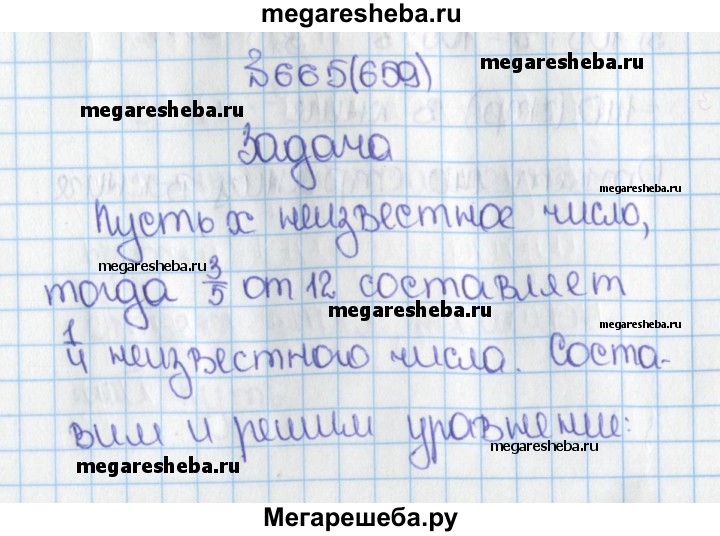 megaresheba.ru
665(659)
megaresheba.ru
megaresheba.ru
Задача
megaresheba.ru
Пусть x неизвестное число,
megaresheba.ru
тогда 3/5 от 12 составляет
megaresheba.ru
1/4 неизвестного числа. Соста-
вим и решим уравнение:
megaresheba.ru
megaresheba.ru
Мегарешеба.ру